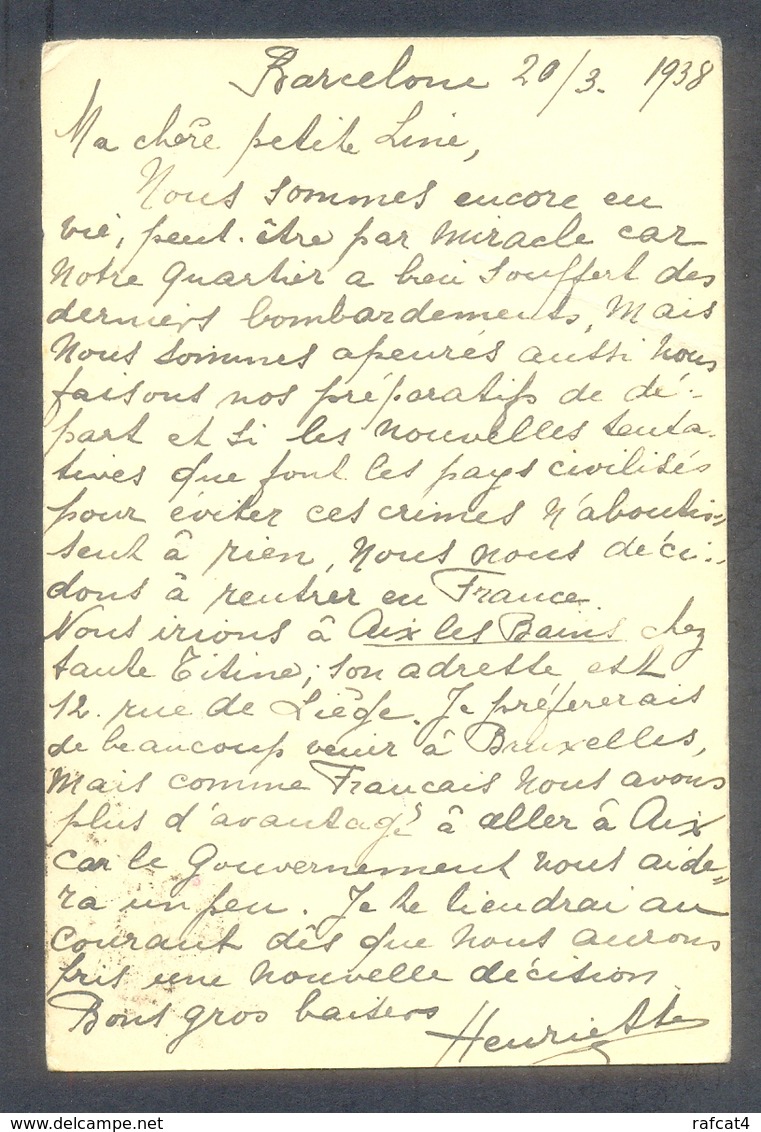 Barcelone 20/3. 1938
Ma chère petite Line,
Nous sommes encore en
vie, peut-être par miracle car
notre quartier a bien souffert des
derniers bombardements, mais
nous sommes apeurés aussi nous
faisons nos préparatifs de dé-
part et si les nouvelles tenta-
tives que font les pays civilisés
pour éviter ces crimes n'aboutis-
sent à rien, nous nous déci-
dons à rentrer en France.
Nous irions à Aix les Bains chez
tante Titine; son adresse est
12. rue de Liège. Je préfererais
de beaucoup venir à Bruxelles,
mais comme Francais nous avons
plus d'avantage à aller à Aix
car le Gouvernement nous aide-
ra un peu. Je te tiendrai au
courant dès que nous aurons
pris une nouvelle décision
Bons gros baisers
Henriette
delcampe.net
rafcat4